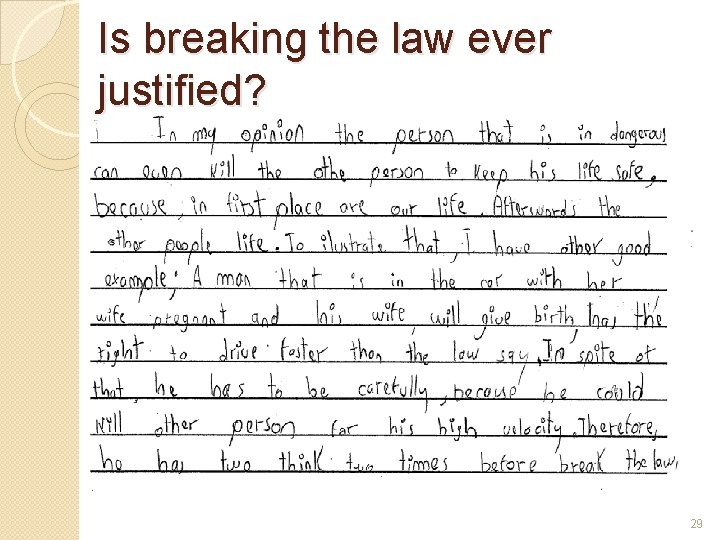 Is breaking the law ever
justified?
In my opinion the person that is in dangerous
can even kill the othe person to keep his life safe,
because, in first place are our life. Afterwords the
other people life. To ilustrate that, I have other good
example; A man that is in the car with her
wife pregnant and his wife will give birth has the
right to drive faster than the law say. In spite of
that, he has to be carefully, because he could
kill other person for his high velocity. Therefore,
he has two think two times before break the law.
29